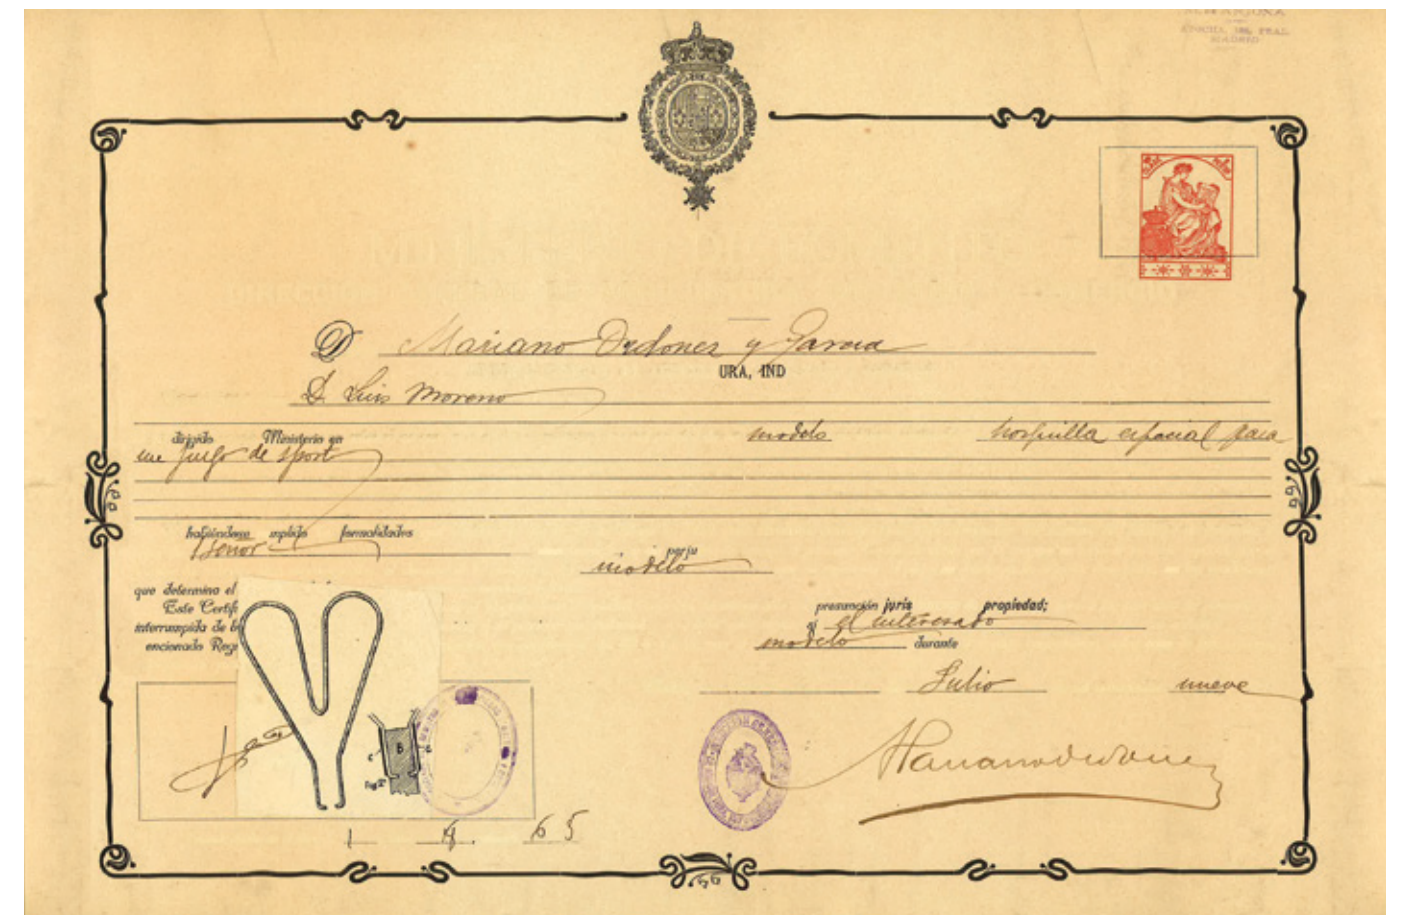 MADRID
D Mariano Ordoñez y Garcia
URA, IND
D. Luis Moreno
dirigido Ministerio en modelo horquilla especial para
un juego de sport
habiéndose mplido formalidades
señor
por su
modelo
que determina el
Este Certif
interrumpida de b
encionado Reg
presunción juris propiedad;
al el interesado
modelo durante
Julio nueve
B
C
1 4 65